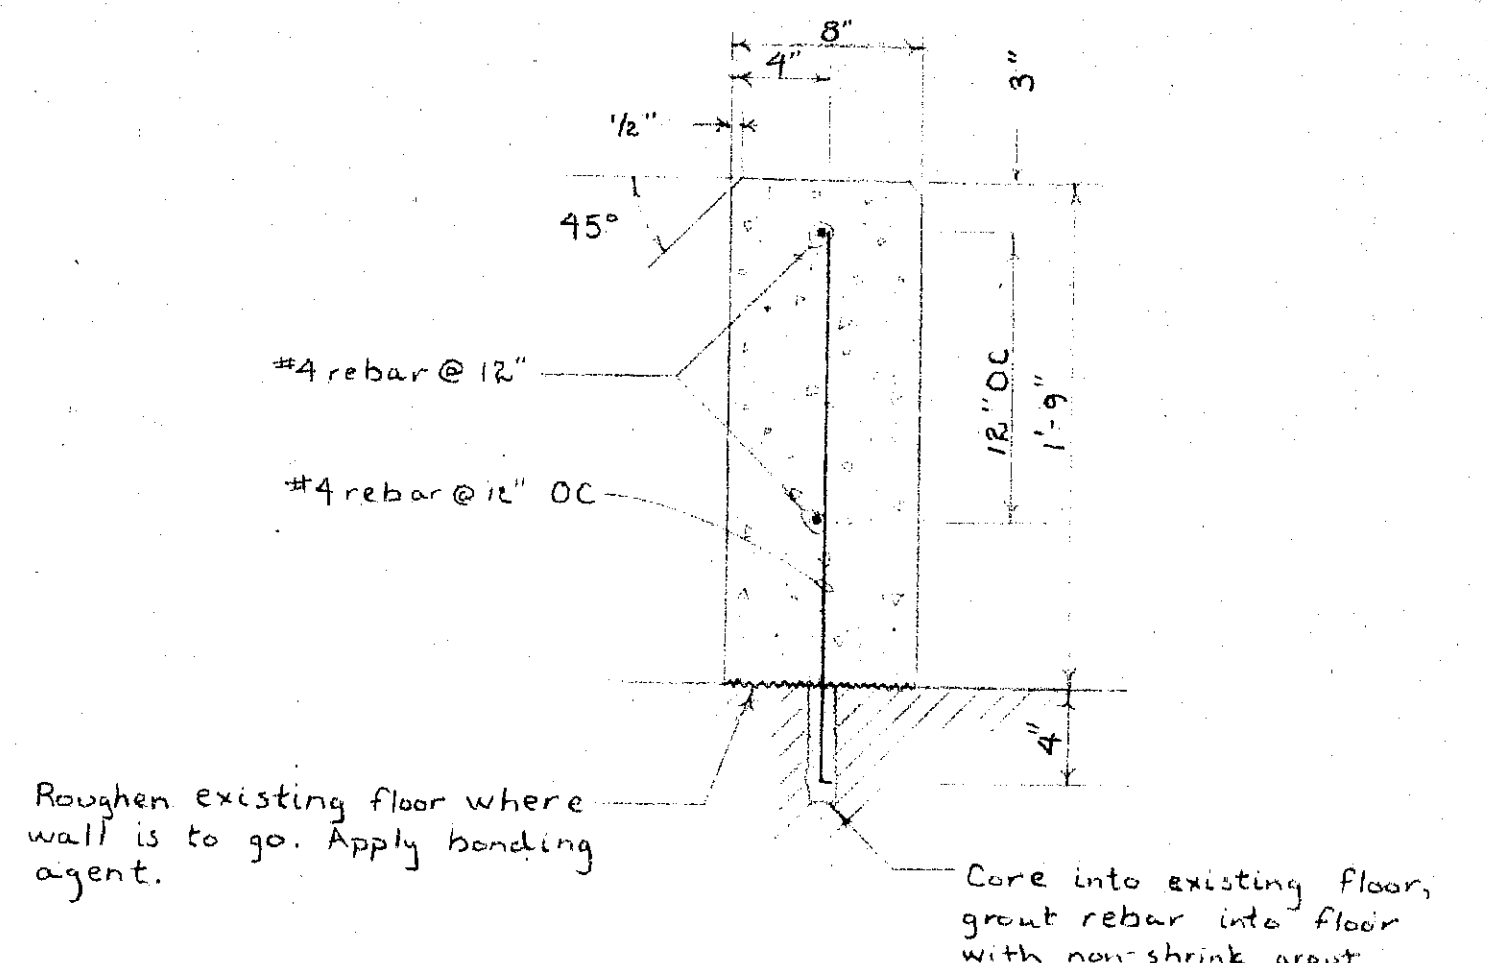 8"
4"
3"
1/2"
45°
#4 rebar @ 12"
12" OC
1'-9"
#4 rebar @ 12" OC
4"
Roughen existing floor where
wall is to go. Apply bonding
agent.
Core into existing floor,
grout rebar into floor
with non-shrink grout